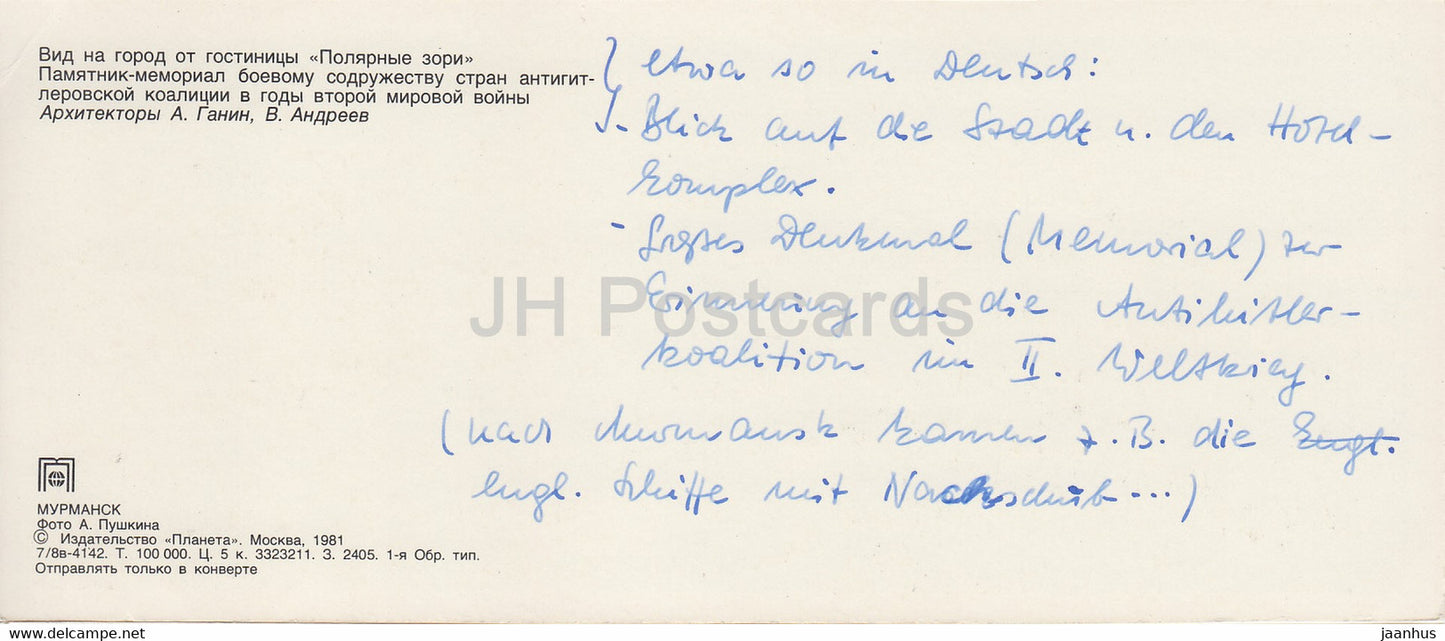 Вид на город от гостиницы «Полярные зори»
Памятник-мемориал боевому содружеству стран антигит-
леровской коалиции в годы второй мировой войны
Архитекторы А. Ганин, В. Андреев
etwa so in Deutsch:
- Blick auf die Stadt u. den Hotel-
komplex.
- Großes Denkmal (Memorial) zur
Erinnerung an die Antihitler-
koalition im II. Weltkrieg.
(nach Murmansk kamen z.B. die Engl.
engl. Schiffe mit Nachschub...)
JH Postcards
МУРМАНСК
Фото А. Пушкина
© Издательство «Планета». Москва, 1981
7/8в-4142. Т. 100 000. Ц. 5 к. 3323211. З. 2405. 1-я Обр. тип.
Отправлять только в конверте
www.delcampe.net
jaanhus